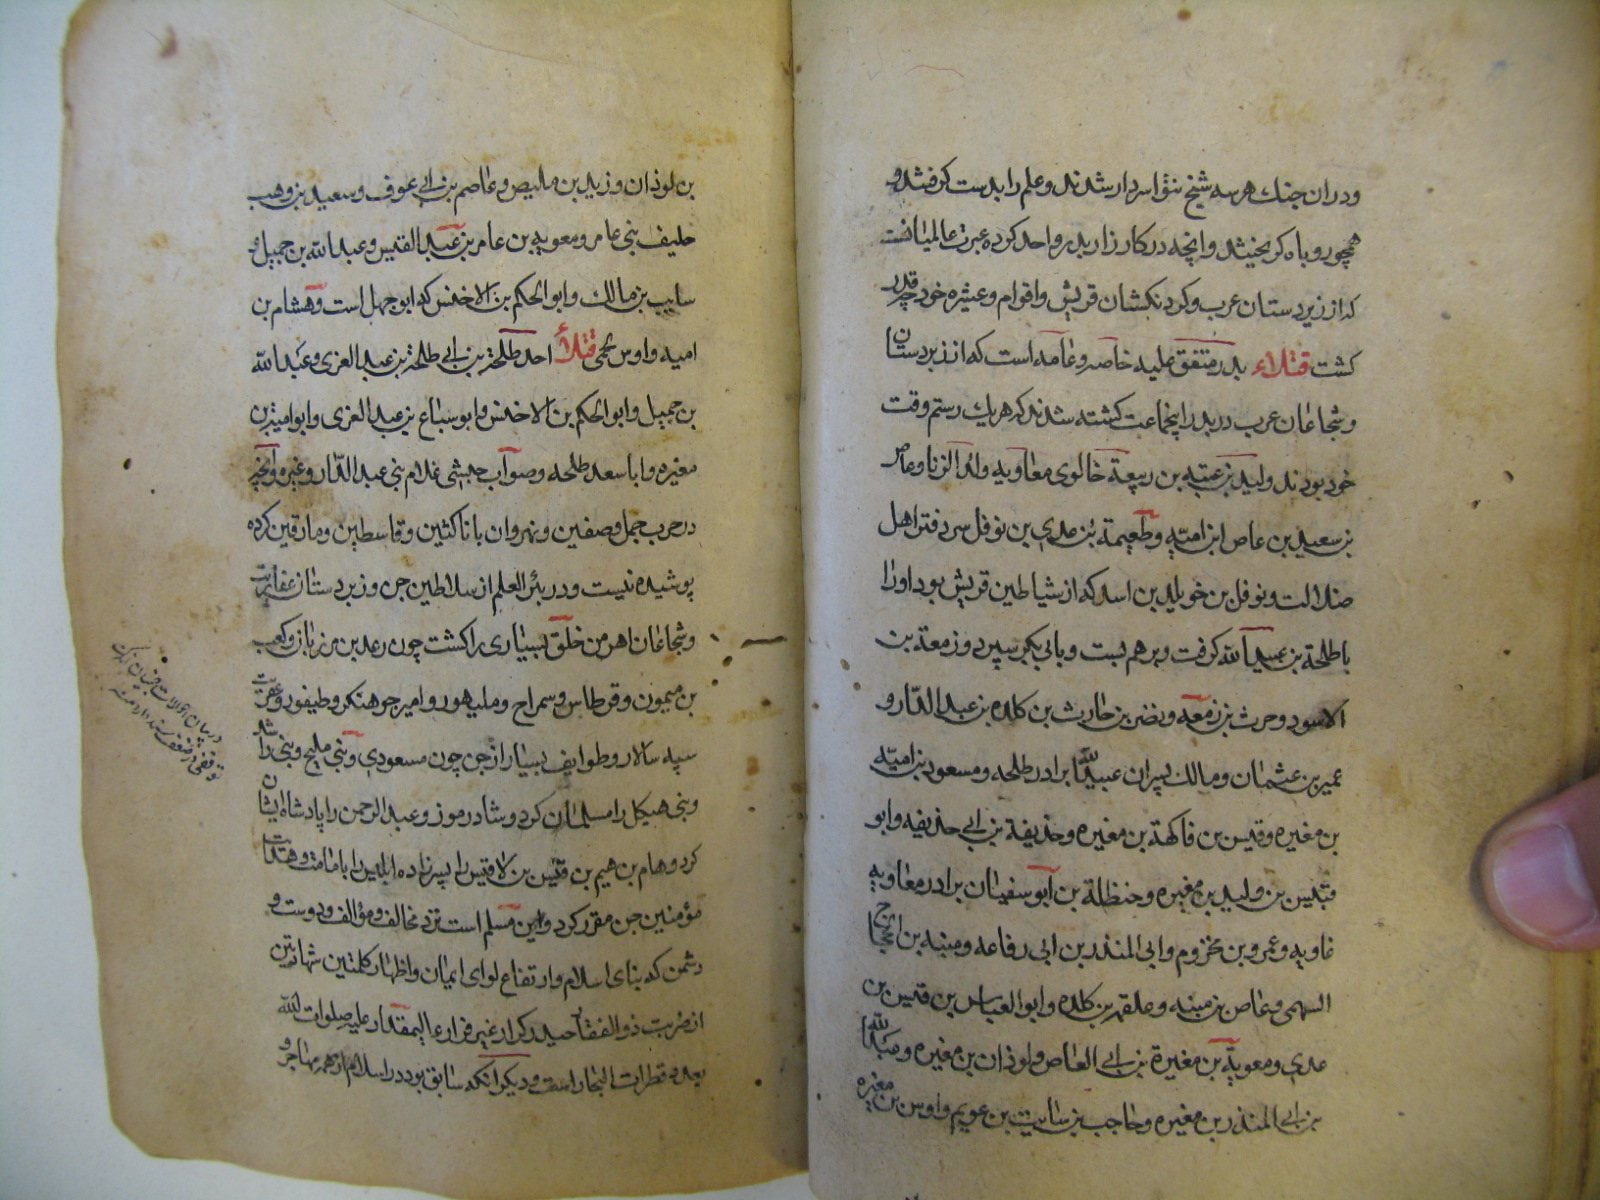 ودران جنك هرسه شیخ شقوا سردار شدند وعلم را بدست کرفتند و
همچو روباه کریختند وانچه در کارزار بدر واحد کرده عبرت عالمیانست
که از زبردستان عرب وکردنکشان قریش واقوام وعشیره خود چه قدر
کشت قتلاء بدر متفق علیه خاصه وعامه است که از زبردستان
وشجاعان عرب در بدر اینجماعت کشته شدند که هریك رستم وقت
خود بودند ولید بن عتبه بن ربیعة خالوی معاویه ولد الزنا وعاص
بن سعید بن عاص ابن امیّه وطعیمة بن عدی بن نوفل سردفتر اهل
ضلالت ونوفل بن خویلد بن اسد که از شیاطین قریش بود اورا
با طلحة بن عبیدالله کرفت وبرهم بست وبابی بکر سپرد وزمعة بن
الاسود وحرث بن زمعه ونضر بن حارث بن کلده بن عبد الدّار و
عمیر بن عثمان ومالك پسران عبیدالله برادر طلحه ومسعود بن امیّه
بن مغیره وقیس بن فاکهة بن مغیره وحذیفة بن ابی حذیفه وابو
قیس بن ولید بن مغیره وحنظلة بن ابو سفیان برادر معاویه
غاویه وعمرو بن مخزوم وابی المنذر بن ابی رفاعه ومنبه بن الحجاج
السهمی وعاص بن منبه وعلقمه بن کلده وابو العاس بن قیس بن
عدی ومعویة بن مغیرة بن ابی العاص ولوذان بن مغیره وعبدالله
بن ابی المنذر بن مغیره وحاجب بن سایب بن عویم واوس بن مغیره
بن لوذان وزید بن ملیص وعاصم بن ابی عوف وسعید بن وهب
حلیف بنی عامر ومعویه بن عامر بن عبد القیس وعبدالله بن جمیل و
سایب بن مالك وابو الحکم بن الاخنس که ابو جهل است وهشام بن
امیه واوس جمحی قتلاء احد طلحة بن ابی طلحة بن عبد العزی وعبدالله
بن جمیل وابو الحکم بن الاخنس وابو سباع بن عبد العزی وابو امیة بن
مغیره وابا سعد طلحه وصوآب حبشی غلام بنی عبد الدّار وغیره وآنچه
در حرب جمل وصفین ونهروان با ناکثین وقاسطین ومارقین کرده
پوشیده نیست ودر بئر العلم از سلاطین جن وزبردستان عفاریت
وشجاعان اهرمن خلق بسیاری را کشت چون رعد بن مرزبان وکعب
بن میمون وقرطاس وسمراح وملیهور وامیر جوهنکر وطیفور وعفریت
سپه سالار وطوایف بسیار از جن چون مسعودی وبنی ملیح وبنی راشد
وبنی هیکل را مسلمان کرد وشادرموز وعبد الرحمن را پادشاه ایشان
کرد وهام بن هیم بن قیس بن لاقیس را پسرزاده ابلیس را بامامت وهدایت
مؤمنین جن مقرر کرد واین مسلم است نزد مخالف ومؤالف ودوست و
دشمن که بنای اسلام وارتفاع لوای ایمان واظهار کلمتین شهادتین
از ضربت ذو الفقار حیدر کرار غیر فرار عالیمقدار علیه صلوات الله
بعدد قطرات البحار است ودیکر آنکه سابق بود در اسلام از همه مهاجر و